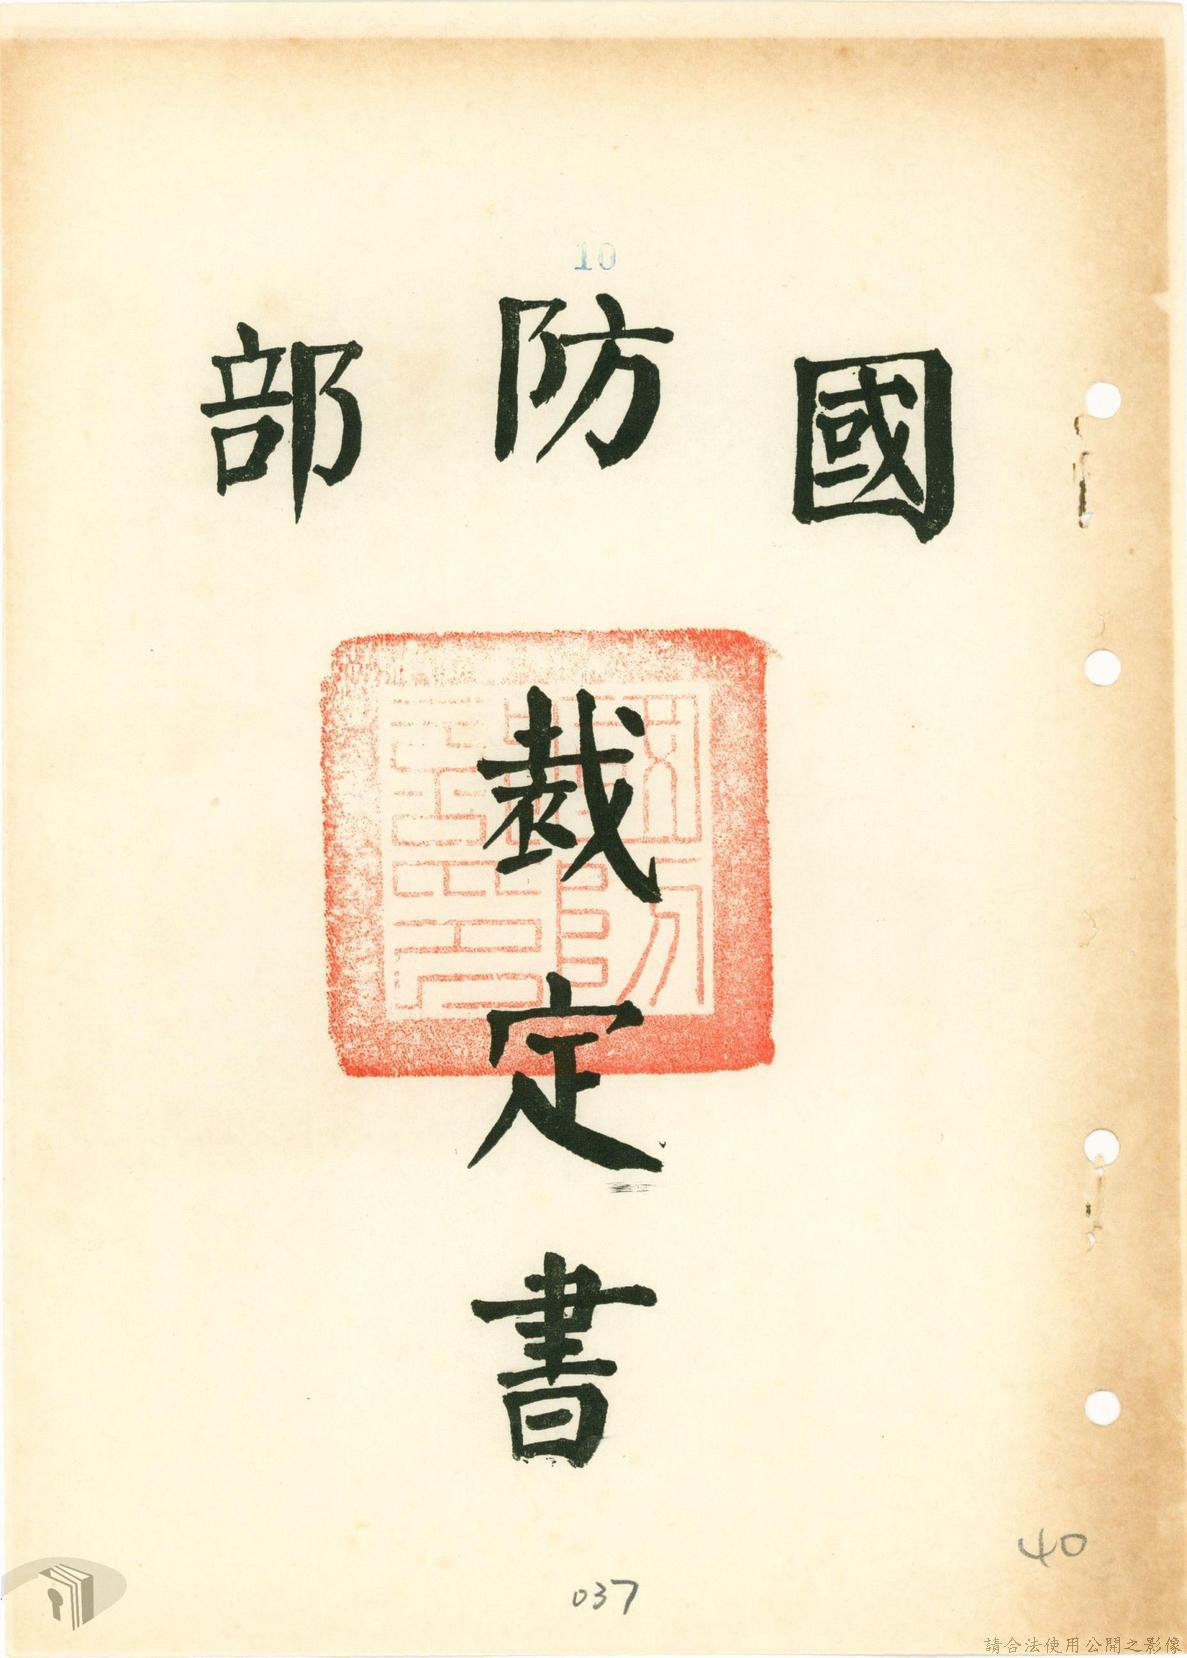 10
國防部
裁定書
40
037
請合法使用公開之影像